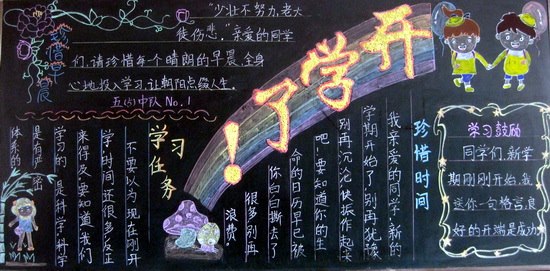 珍惜早晨
“少壮不努力,老大
徒伤悲,”亲爱的同学
们,请珍惜每个晴朗的早晨,全身
心地投入学习,让朝阳点缀人生。
中队 No.1
开学了!
珍惜时间
我亲爱的同学,新的
学期开始了,别再犹豫
别再沉沦,快振作起来
吧!要知道你的生
命的日历早已被
你白白撕去了
很多,别再
浪费
学习任务
不要以为现在刚开
学时间还很多反正
来得及,要知道,我们
学习的是科学,科学
是有严密
体系的
学习鼓励
同学们,新学
期刚刚开始,我
送你一句格言,良
好的开端是成功